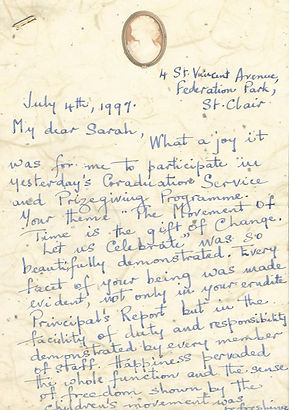 4 St. Vincent Avenue,
Federation Park,
St. Clair
July 4th, 1997.
My dear Sarah,
What a joy it
was for me to participate in
yesterday's Graduation Service
and Prizegiving Programme.
Your theme "The Movement Of
Time is the gift of Change.
Let us Celebrate" was so
beautifully demonstrated. Every
facet of your being was made
evident, not only in your erudite
Principal's Report but in the
facility of duty and responsibility
demonstrated by every member
of staff. Happiness pervaded
the whole function and the sense
of freedom shown by the
children's movement was